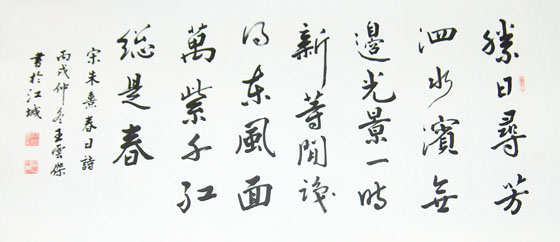 勝日尋芳
泗水濱無
邊光景一時
新等閒識
得东風面
萬紫千紅
總是春
宋朱熹春日詩
丙戌仲冬王雲傑
書於江城